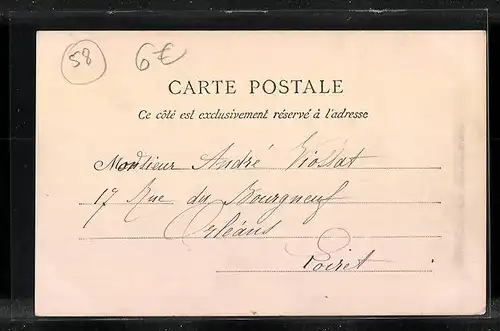 58 6€
CARTE POSTALE
Ce côté est exclusivement réservé à l'adresse
Monsieur André Viossat
17 Rue du Bourgneuf
Orléans
Loiret